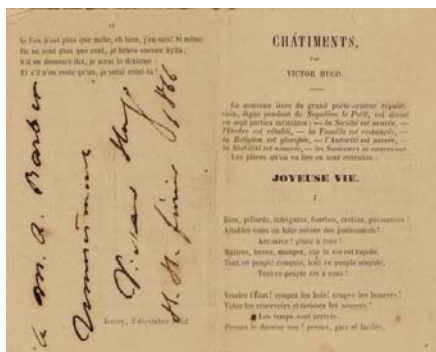 Si l'on n'est plus que mille, eh bien, j'en suis! Si même
Ils ne sont plus que cent, je brave encore Sylla;
S'il en demeure dix, je serai le dixième;
Et s'il n'en reste qu'un, je serai celui-là!
Jersey, 2 décembre
à M. A. Barbier
Victor Hugo
H. H. 1866
CHÂTIMENTS,
PAR
VICTOR HUGO.
Ce nouveau livre du grand poète-orateur républi-
cain, digne pendant de Napoléon le Petit, est divisé
en sept parties intitulées : — la Société est sauvée, —
l'Ordre est rétabli, — la Famille est restaurée, —
la Religion est glorifiée, — l'Autorité est sacrée, —
la Stabilité est assurée, — les Sauveurs se sauveront.
Les pièces qu'on va lire en sont extraites :
JOYEUSE VIE.
I
Bien, pillards, intrigants, fourbes, crétins, puissances!
Attablez-vous en hâte autour des jouissances!
Accourez! place à tous!
Maîtres, buvez, mangez, car la vie est rapide.
Tout ce peuple conquis, tout ce peuple stupide,
Tout ce peuple est à vous!
Vendez l'État! coupez les bois! coupez les bourses!
Videz les réservoirs et tarissez les sources!
Les temps sont arrivés.
Prenez le dernier sou! prenez, gais et faciles,